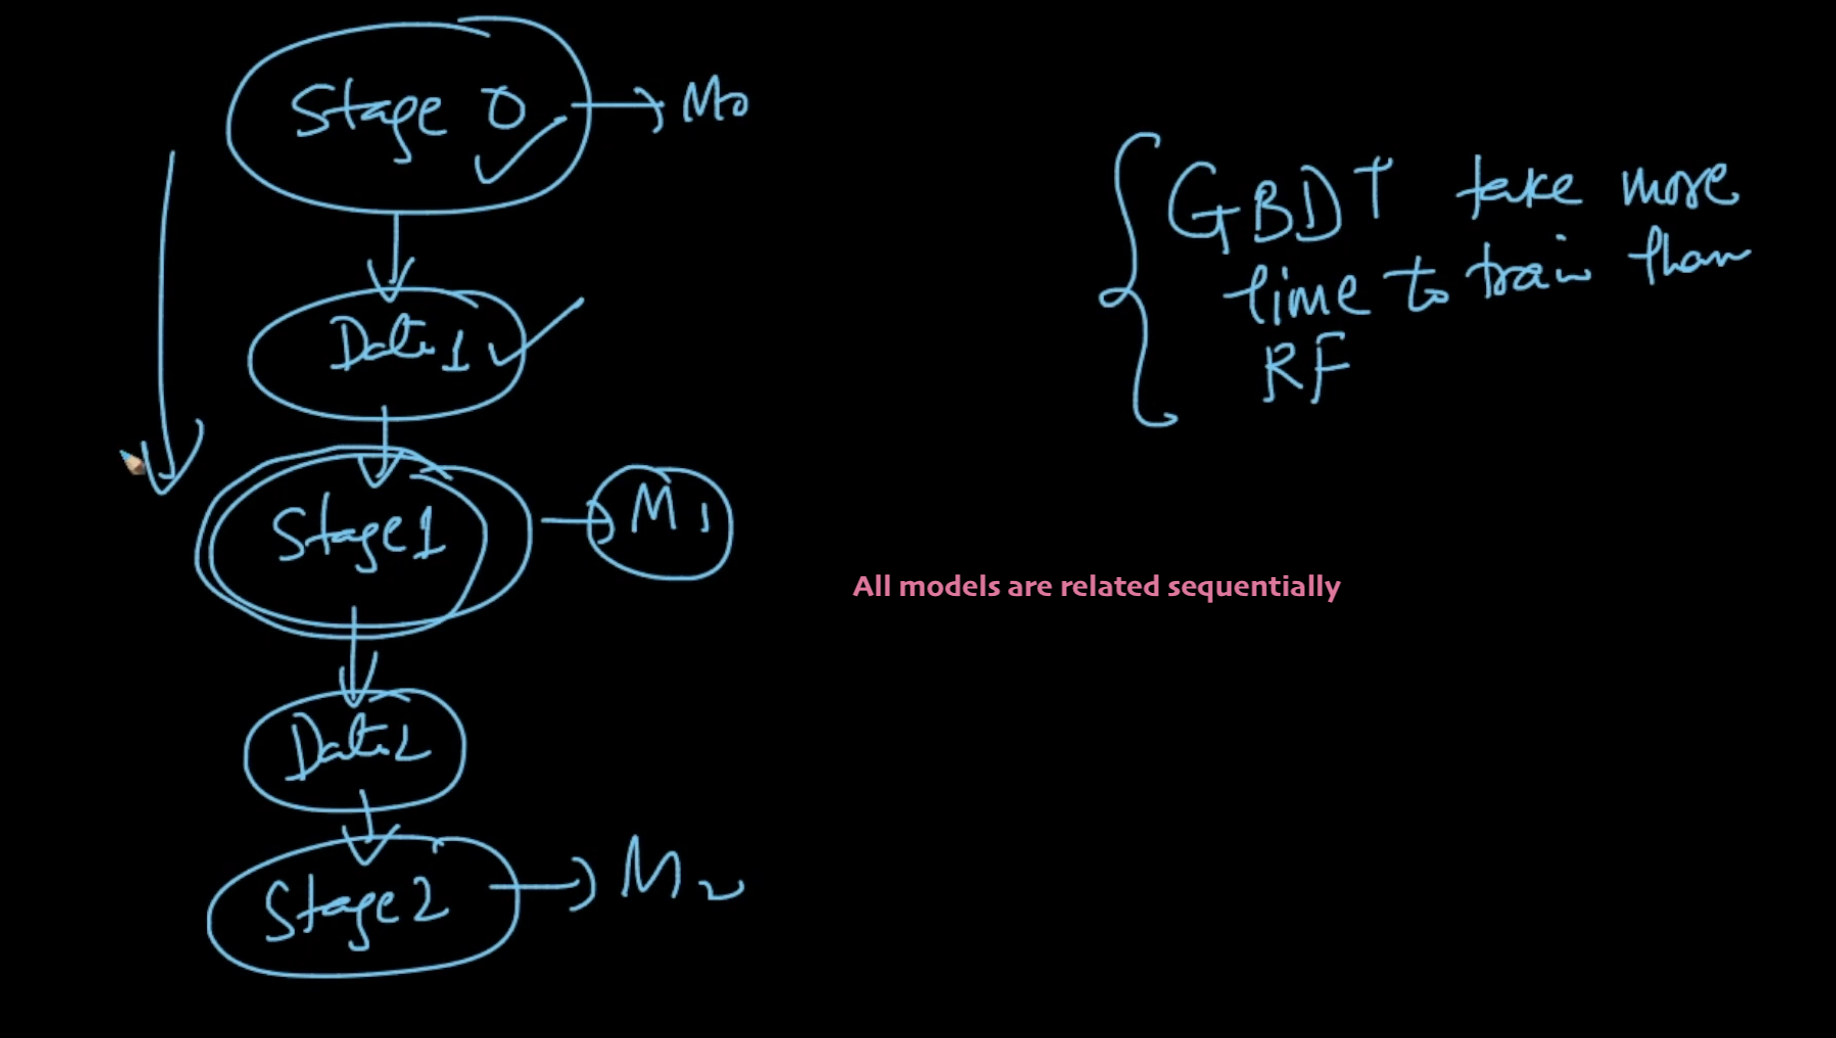 Stage 0
M0
Data 1
Stage 1
M1
Data 2
Stage 2
M2
GBDT take more
time to train than
RF
All models are related sequentially